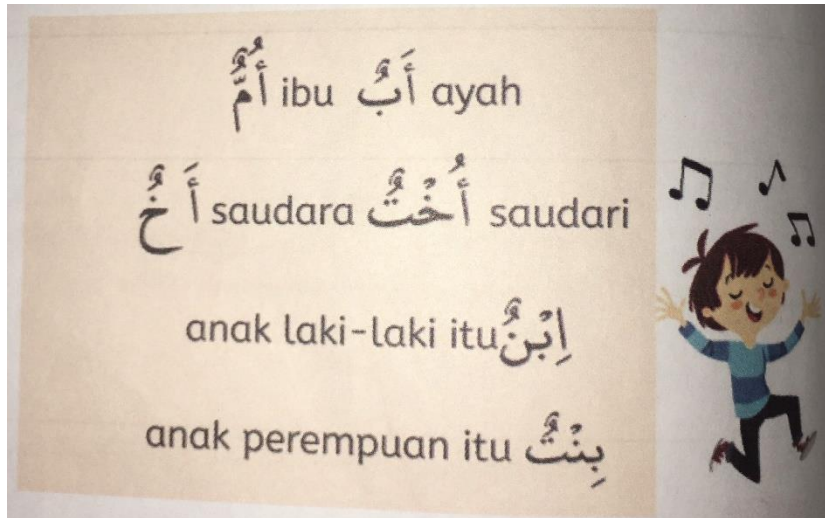 أُمٌّ ibu أَبٌ ayah
أَخٌ saudara أُخْتٌ saudari
anak laki-laki itu اِبْنٌ
anak perempuan itu بِنْتٌ